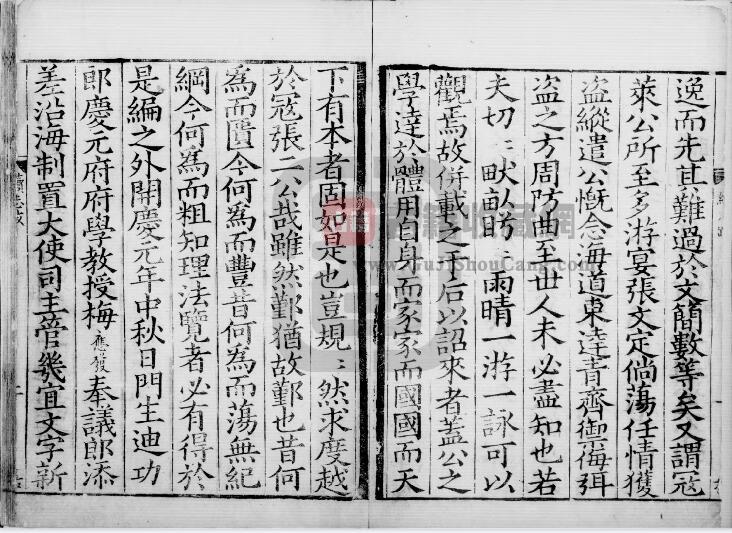 逸而先其難過於文簡數等矣又謂寇
萊公所至多游宴張文定倘蕩任情獲
盜縱遣公慨念海道東達青齊御侮弭
盜之方周防曲至世人未必盡知也若
夫切〻畎畝〻雨晴一游一詠可以
觀焉故併載之于后以詔來者蓋公之
學達於體用自身而家家而國國而天
下有本者固如是也豈規〻然求度越
於寇張二公哉雖然鄞猶故鄞也昔何
為而匱今何為而豐昔何為而蕩無紀
綱今何為而粗知理法覽者必有得於
是編之外開慶元年中秋日門生迪功
郎慶元府府學教授梅應發奉議郎添
差沿海制置大使司主管幾宜文字新
籍收藏網
www.GuJiShouCang.com